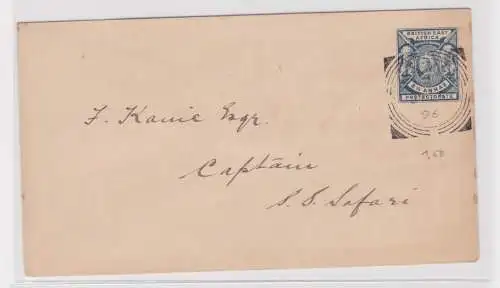 BRITISH EAST
AFRICA
PROTECTORATE
96
F. Kanie Esqr.
Captain
S. S. Safari